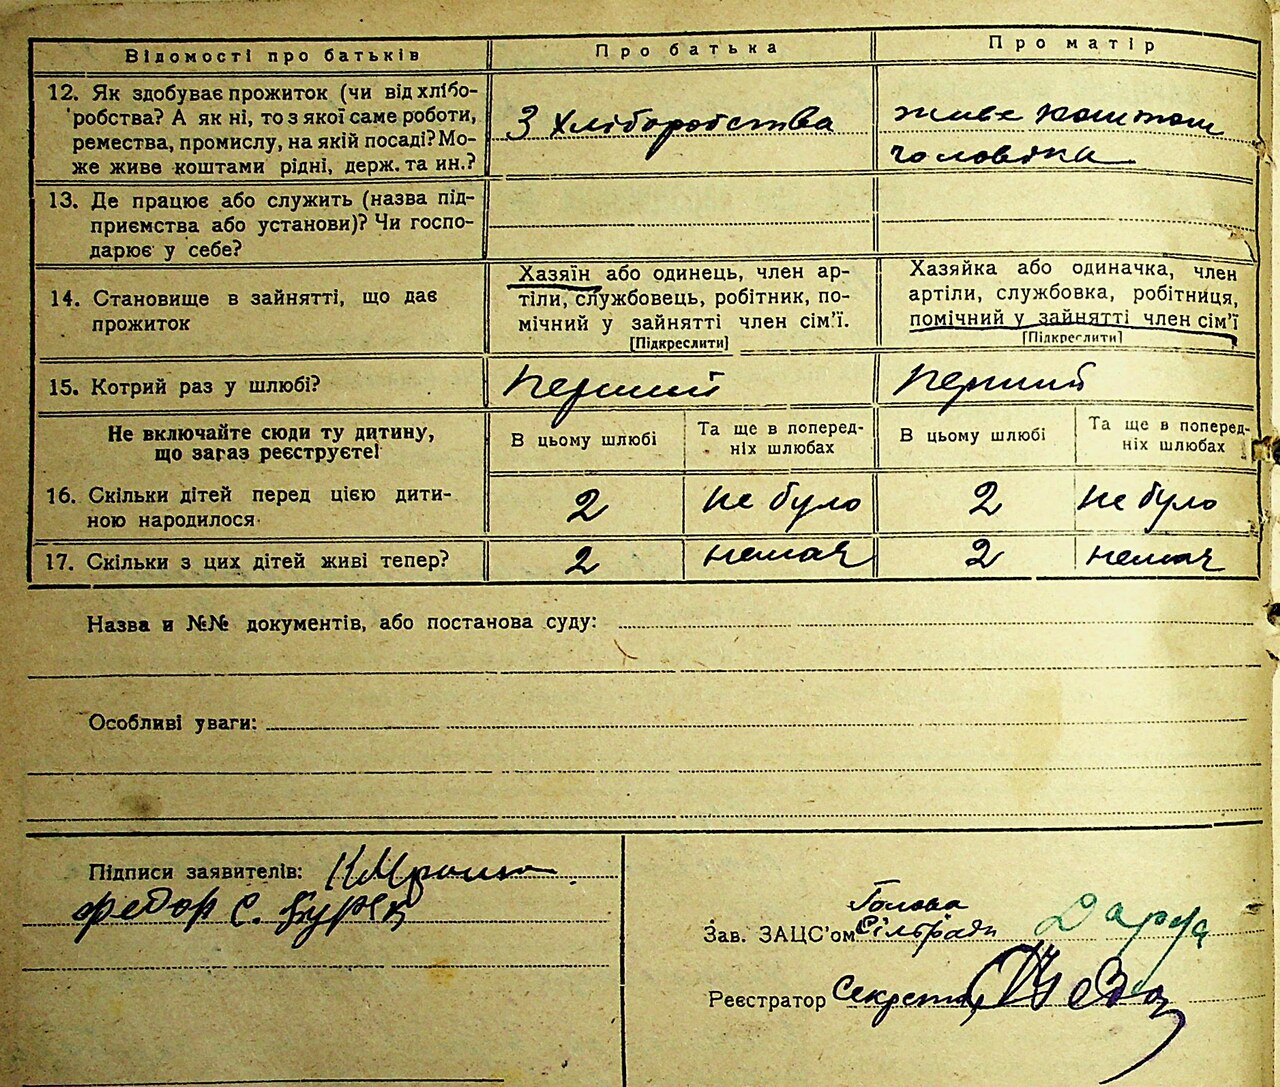 Відомості про батьків
Про батька
Про матір
12. Як здобуває прожиток (чи від хлібо-
робства? А як ні, то з якої саме роботи,
ремества, промислу, на якій посаді? Мо-
же живе коштами рідні, держ. та ин.?
З хліборобства
живе коштом
чоловіка
13. Де працює або служить (назва під-
приємства або установи)? Чи госпо-
дарює у себе?
14. Становище в зайнятті, що дає
прожиток
Хазяїн або одинець, член ар-
тіли, службовець, робітник, по-
мічний у зайнятті член сім'ї.
[Підкреслити]
Хазяйка або одиначка, член
артіли, службовка, робітниця,
помічний у зайнятті член сім'ї
[Підкреслити]
15. Котрий раз у шлюбі?
Перший
Перший
Не включайте сюди ту дитину,
що загаз реєструєте!
В цьому шлюбі
Та ще в поперед-
ніх шлюбах
В цьому шлюбі
Та ще в поперед-
ніх шлюбах
16. Скільки дітей перед цією дити-
ною народилося
2
не було
2
не було
17. Скільки з цих дітей живі тепер?
2
немає
2
немає
Назва и №№ документів, або постанова суду:
Особливі уваги:
Підписи заявителів:
Федор С.
Голова
Зав. ЗАЦС'ом Сільради
Реєстратор Секретар